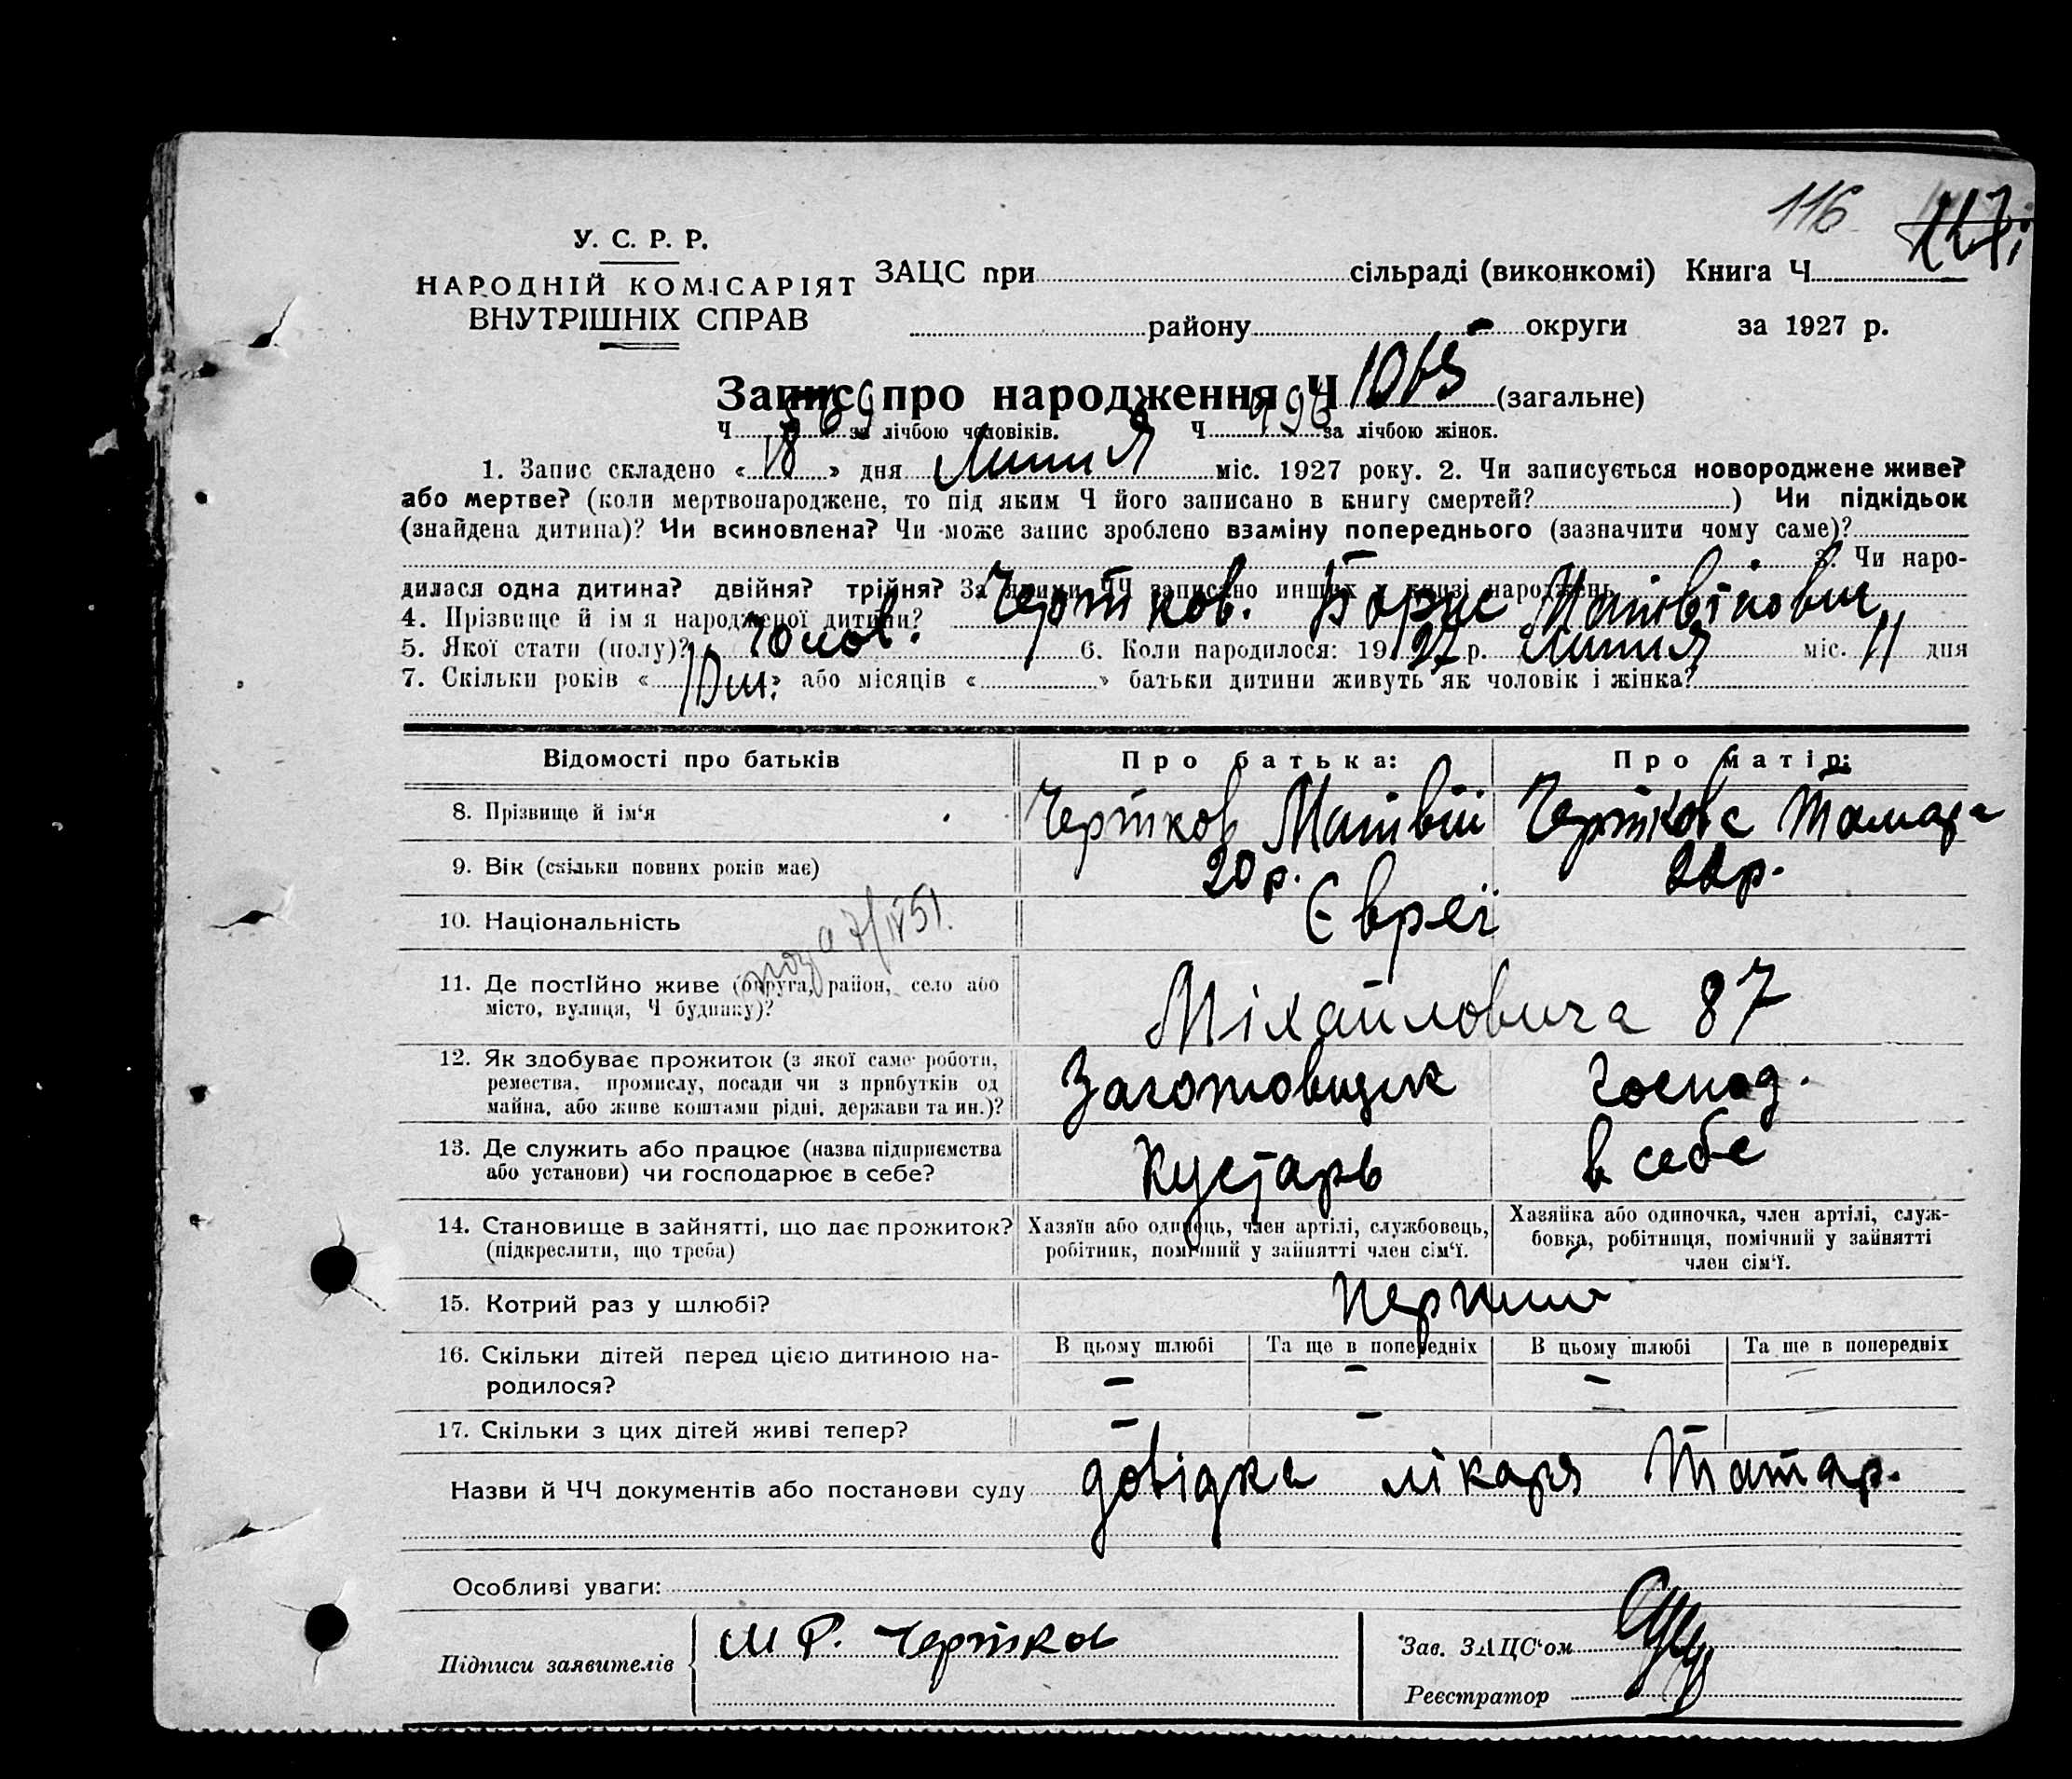 116 117
У. С. Р. Р.
НАРОДНІЙ КОМІСАРІЯТ
ВНУТРІШНІХ СПРАВ
ЗАЦС при сільраді (виконкомі) Книга Ч
району округи за 1927 р.
Запис про народження Ч (загальне)
Ч 569 за лічбою чоловіків. Ч 496 за лічбою жінок.
1. Запис складено «18» дня Липня міс. 1927 року. 2. Чи записується новороджене живе?
або мертве? (коли мертвонароджене, то під яким Ч його записано в книгу смертей? ) Чи підкідьок
(знайдена дитина)? Чи всиновлена? Чи може запис зроблено взаміну попереднього (зазначити чому саме)?
3. Чи наро-
дилася одна дитина? двійня? трійня? За якими ЧЧ записано инших у книзі народжень
4. Прізвище й ім я народженої дитини? Чертков. Борис Матвійович
5. Якої стати (полу)? Чолов. 6. Коли народилося: 1927 р. Липня міс. 11 дня
7. Скільки років « » або місяців « » батьки дитини живуть як чоловік і жінка?
Відомості про батьків Про батька: Про матір:
8. Прізвище й ім'я Чертков Матвій Черткова Тамара
9. Вік (скільки повних років має) 20 р. 22 р.
10. Національність Євреї
11. Де постійно живе (округа, район, село або
місто, вулиця, Ч будинку)? Міхайловича 87
12. Як здобуває прожиток (з якої саме роботи,
ремества, промислу, посади чи з прибутків од
майна, або живе коштами рідні, держави та ин.)? Заготовщик Господ.
13. Де служить або працює (назва підприємства
або установи) чи господарює в себе? Кустарь в себе
14. Становище в зайнятті, що дає прожиток?
(підкреслити, що треба)
Хазяїн або одинець, член артілі, службовець,
робітник, помічний у зайнятті член сім'ї.
Хазяйка або одиночка, член артілі, служ-
бовка, робітниця, помічний у зайнятті
член сім'ї.
15. Котрий раз у шлюбі?
16. Скільки дітей перед цією дитиною на-
родилося?
В цьому шлюбі Та ще в попередніх В цьому шлюбі Та ще в попередніх
– – – –
17. Скільки з цих дітей живі тепер? – – –
Назви й ЧЧ документів або постанови суду довідка лікаря Татар.
Особливі уваги:
Підписи заявителів М Р. Чертков
Зав. ЗАЦС'ом
Реєстратор